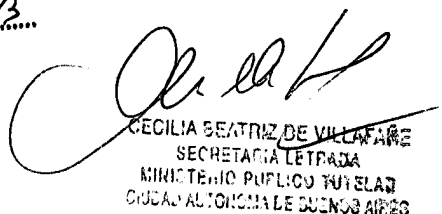 CECILIA BEATRIZ DE VILLAFAÑE
SECRETARIA LETRADA
MINISTERIO PUBLICO TUTELAR
CIUDAD AUTONOMA DE BUENOS AIRES